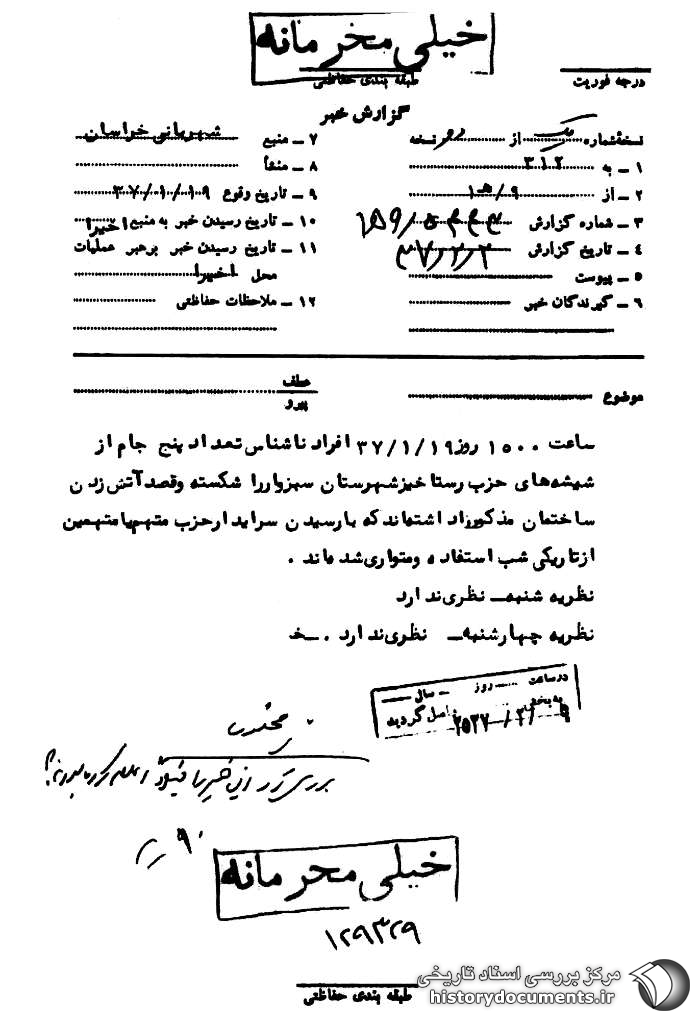 خیلی محرمانه
طبقه بندی حفاظتی
درجه فوریت
گزارش خبر
نسخهٔ شماره یک از دو نسخه
۱ – به ۳۱۲
۲ – از ۹/هـ۱
۳ – شماره گزارش
۴ – تاریخ گزارش ۳۷/۲/۲
۵ – پیوست
۶ – گیرندگان خبر
۷ – منبع شهربانی خراسان
۸ – منشأ
۹ – تاریخ وقوع ۳۷/۱/۱۹
۱۰ – تاریخ رسیدن خبر به منبع اخیرا
۱۱ – تاریخ رسیدن خبر برهبر عملیات
محل اخیرا
۱۲ – ملاحظات حفاظتی
موضوع
عطف
پیرو
ساعت ۱۵۰۰ روز ۳۷/۱/۱۹ افراد ناشناس تعداد پنج جام از
شیشه‌های حزب رستاخیز شهرستان سبزوار را شکسته وقصد آتش زدن
ساختمان مذکور را داشته‌اند که با رسیدن سرایدار حزب متهم یا متهمین
از تاریکی شب استفاده و متواری شده‌اند .
نظریه شنبه – نظری ندارد
نظریه چهارشنبه – نظری ندارد . – خ
در ساعت روز – سال
به بخش واصل گردید
۲۵۳۷/۲/
بررسی شود این خبر را
۹۰
خیلی محرمانه
۱۲۹۳۲۹
طبقه بندی حفاظتی
مرکز بررسی اسناد تاریخی
historydocuments.ir